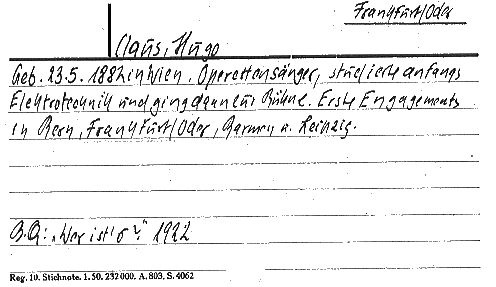 Frankfurt/Oder
Claus, Hugo
Geb. 23.5. 1882 in Wien. Operettensänger, studierte anfangs
Elektrotechnik und ging dann zur Bühne. Erste Engagements
in Bern, Frankfurt/Oder, Barmen u. Leipzig.
B.Q: "Wer ist's?" 1922
Reg. 10. Stichnote. 1. 50. 232000. A. 803. S. 4062